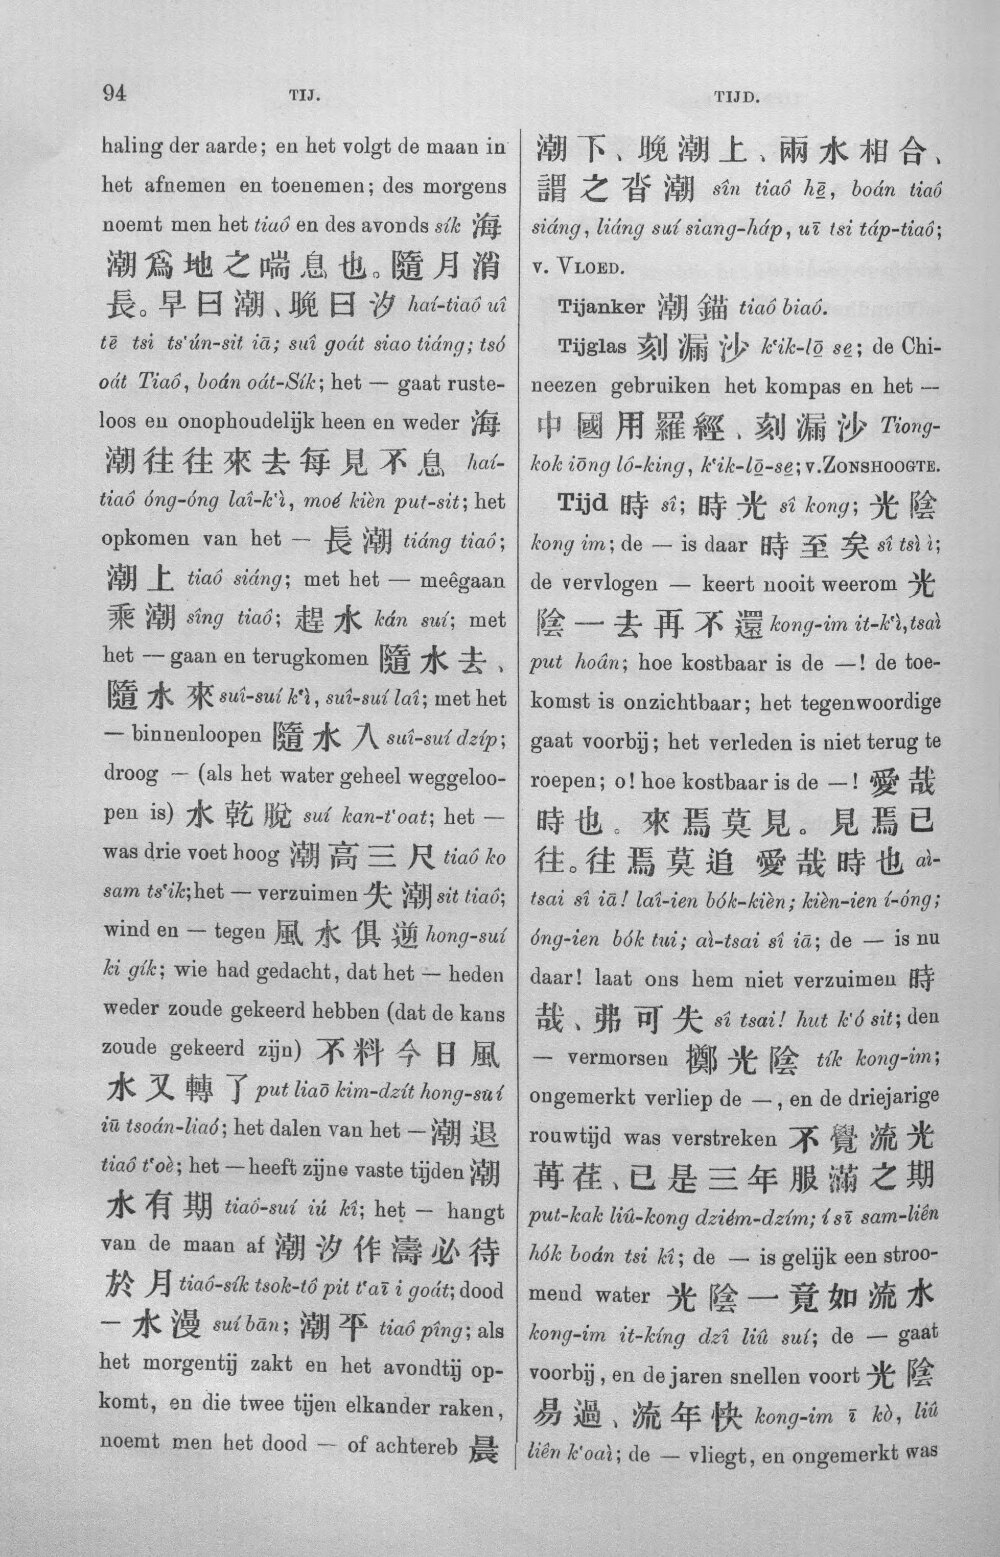 94
TIJ.
TIJD.
haling der aarde; en het volgt de maan in
het afnemen en toenemen; des morgens
noemt men het tiaô en des avonds sík 海
潮爲地之喘息也。隨月消
長。早曰潮、晚曰汐 haí-tiaô uî
tē tsi ts'ún-sit iā; suî goát siao tiáng; tsó
oát Tiaô, boán oát-Sík; het — gaat ruste-
loos en onophoudelijk heen en weder 海
潮往往來去每見不息 haí-
tiaô óng-óng laî-k'ì, moé kièn put-sit; het
opkomen van het — 長潮 tiáng tiaô;
潮上 tiaô siáng; met het — meêgaan
乘潮 sîng tiaô; 趕水 kán suí; met
het — gaan en terugkomen 隨水去、
隨水來 suî-suí k'ì, suî-suí laî; met het
— binnenloopen 隨水入 suî-suí dzíp;
droog — (als het water geheel weggeloo-
pen is) 水乾脫 suí kan-t'oat; het —
was drie voet hoog 潮高三尺 tiaô ko
sam ts'ik; het — verzuimen 失潮 sit tiaô;
wind en — tegen 風水俱逆 hong-suí
ki gík; wie had gedacht, dat het — heden
weder zoude gekeerd hebben (dat de kans
zoude gekeerd zijn) 不料今日風
水又轉了 put liaō kim-dzít hong-suí
iū tsoán-liaó; het dalen van het — 潮退
tiaô t'oè; het — heeft zijne vaste tijden 潮
水有期 tiaô-suí iú kî; het — hangt
van de maan af 潮汐作濤必待
於月 tiaô-sík tsok-tô pit t'aī i goát; dood
— 水漫 suí bān; 潮平 tiaô pîng; als
het morgentij zakt en het avondtij op-
komt, en die twee tijen elkander raken,
noemt men het dood — of achtereb 晨
潮下、晚潮上、兩水相合、
謂之沓潮 sîn tiaô hē, boán tiaô
siáng, liáng suí siang-háp, uī tsi táp-tiaô;
v. VLOED.
Tijanker 潮錨 tiaô biaô.
Tijglas 刻漏沙 k'ik-lō se; de Chi-
neezen gebruiken het kompas en het —
中國用羅經、刻漏沙 Tiong-
kok iōng lô-king, k'ik-lō-se; v. ZONSHOOGTE.
Tijd 時 sî; 時光 sî kong; 光陰
kong im; de — is daar 時至矣 sî tsì ì;
de vervlogen — keert nooit weerom 光
陰一去再不還 kong-im it-k'ì, tsaì
put hoân; hoe kostbaar is de —! de toe-
komst is onzichtbaar; het tegenwoordige
gaat voorbij; het verleden is niet terug te
roepen; o! hoe kostbaar is de —! 愛哉
時也。來焉莫見。見焉已
往。往焉莫追 愛哉時也 aì-
tsai sî iā! laî-ien bók-kièn; kièn-ien í-óng;
óng-ien bók tui; aì-tsai sî iā; de — is nu
daar! laat ons hem niet verzuimen 時
哉、弗可失 sî tsai! hut k'ó sit; den
— vermorsen 擲光陰 tík kong-im;
ongemerkt verliep de —, en de driejarige
rouwtijd was verstreken 不覺流光
苒荏、已是三年服滿之期
put-kak liû-kong dziém-dzím; í sī sam-liên
hók boán tsi kî; de — is gelijk een stroo-
mend water 光陰一竟如流水
kong-im it-kíng dzî liû suí; de — gaat
voorbij, en de jaren snellen voort 光陰
易過、流年快 kong-im ī kò, liû
liên k'oaì; de — vliegt, en ongemerkt was